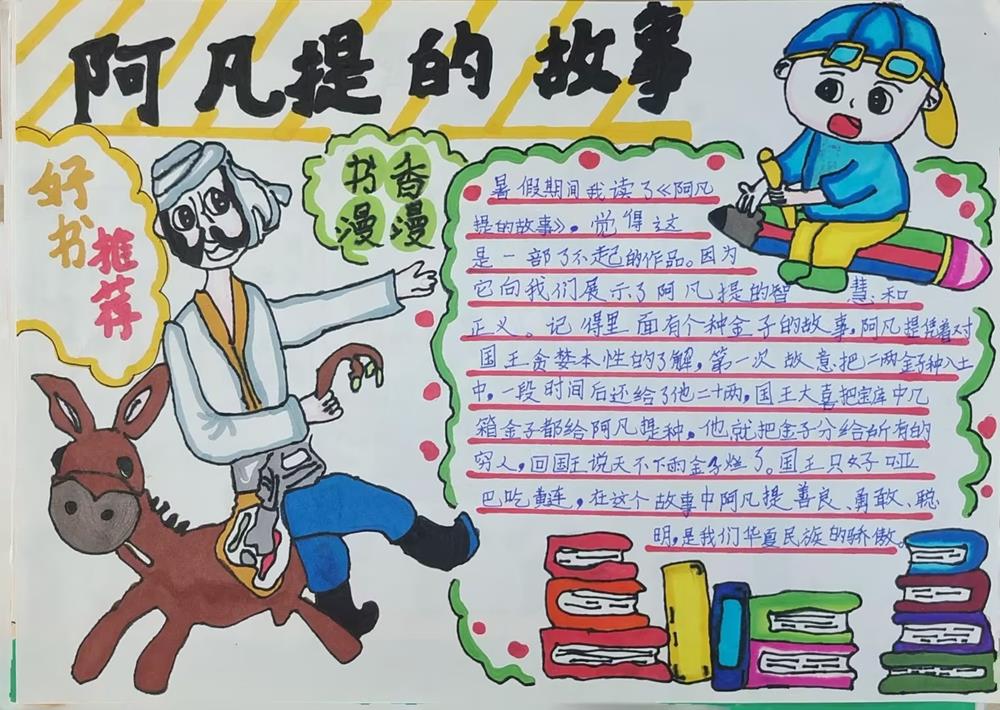 阿凡提的故事
好书
推荐
书香
漫漫
暑假期间我读了《阿凡
提的故事》，觉得这
是一部了不起的作品。因为
它向我们展示了阿凡提的智慧和
正义。记得里面有个种金子的故事，阿凡提凭着对
国王贪婪本性的了解，第一次故意把二两金子种入土
中，一段时间后还给了他二十两，国王大喜把宝库中几
箱金子都给阿凡提种，他就把金子分给所有的
穷人，回国王说天不下雨金子烂了。国王只好哑
巴吃黄连，在这个故事中阿凡提善良、勇敢、聪
明，是我们华夏民族的骄傲。